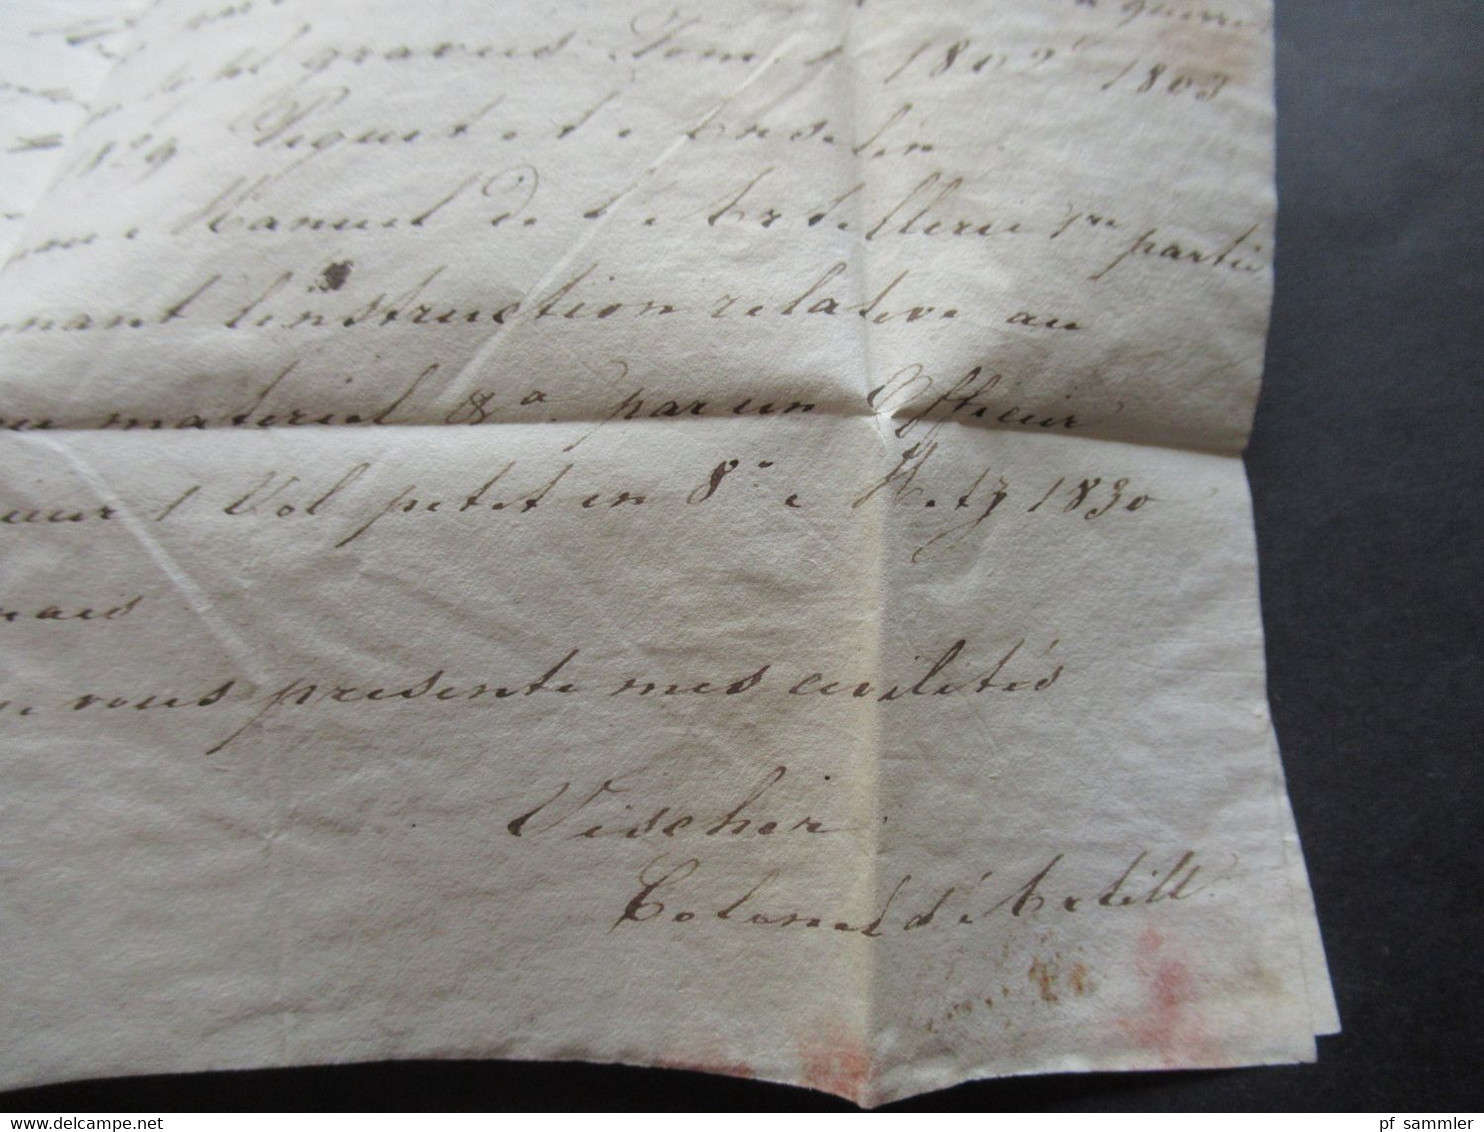 guerre
gravues Tom 1802 1803
1829 Piquet et Anselin
Manuel de l'Artillerie 1re partie
nant l'instruction relative au
materiel &a par un Officier
ieur 1 Vol petit in 8o Metz 1830
mais
vous presente mes civilités
Vischer
Colonel d'Artill
delcampe.net
pf_sammler